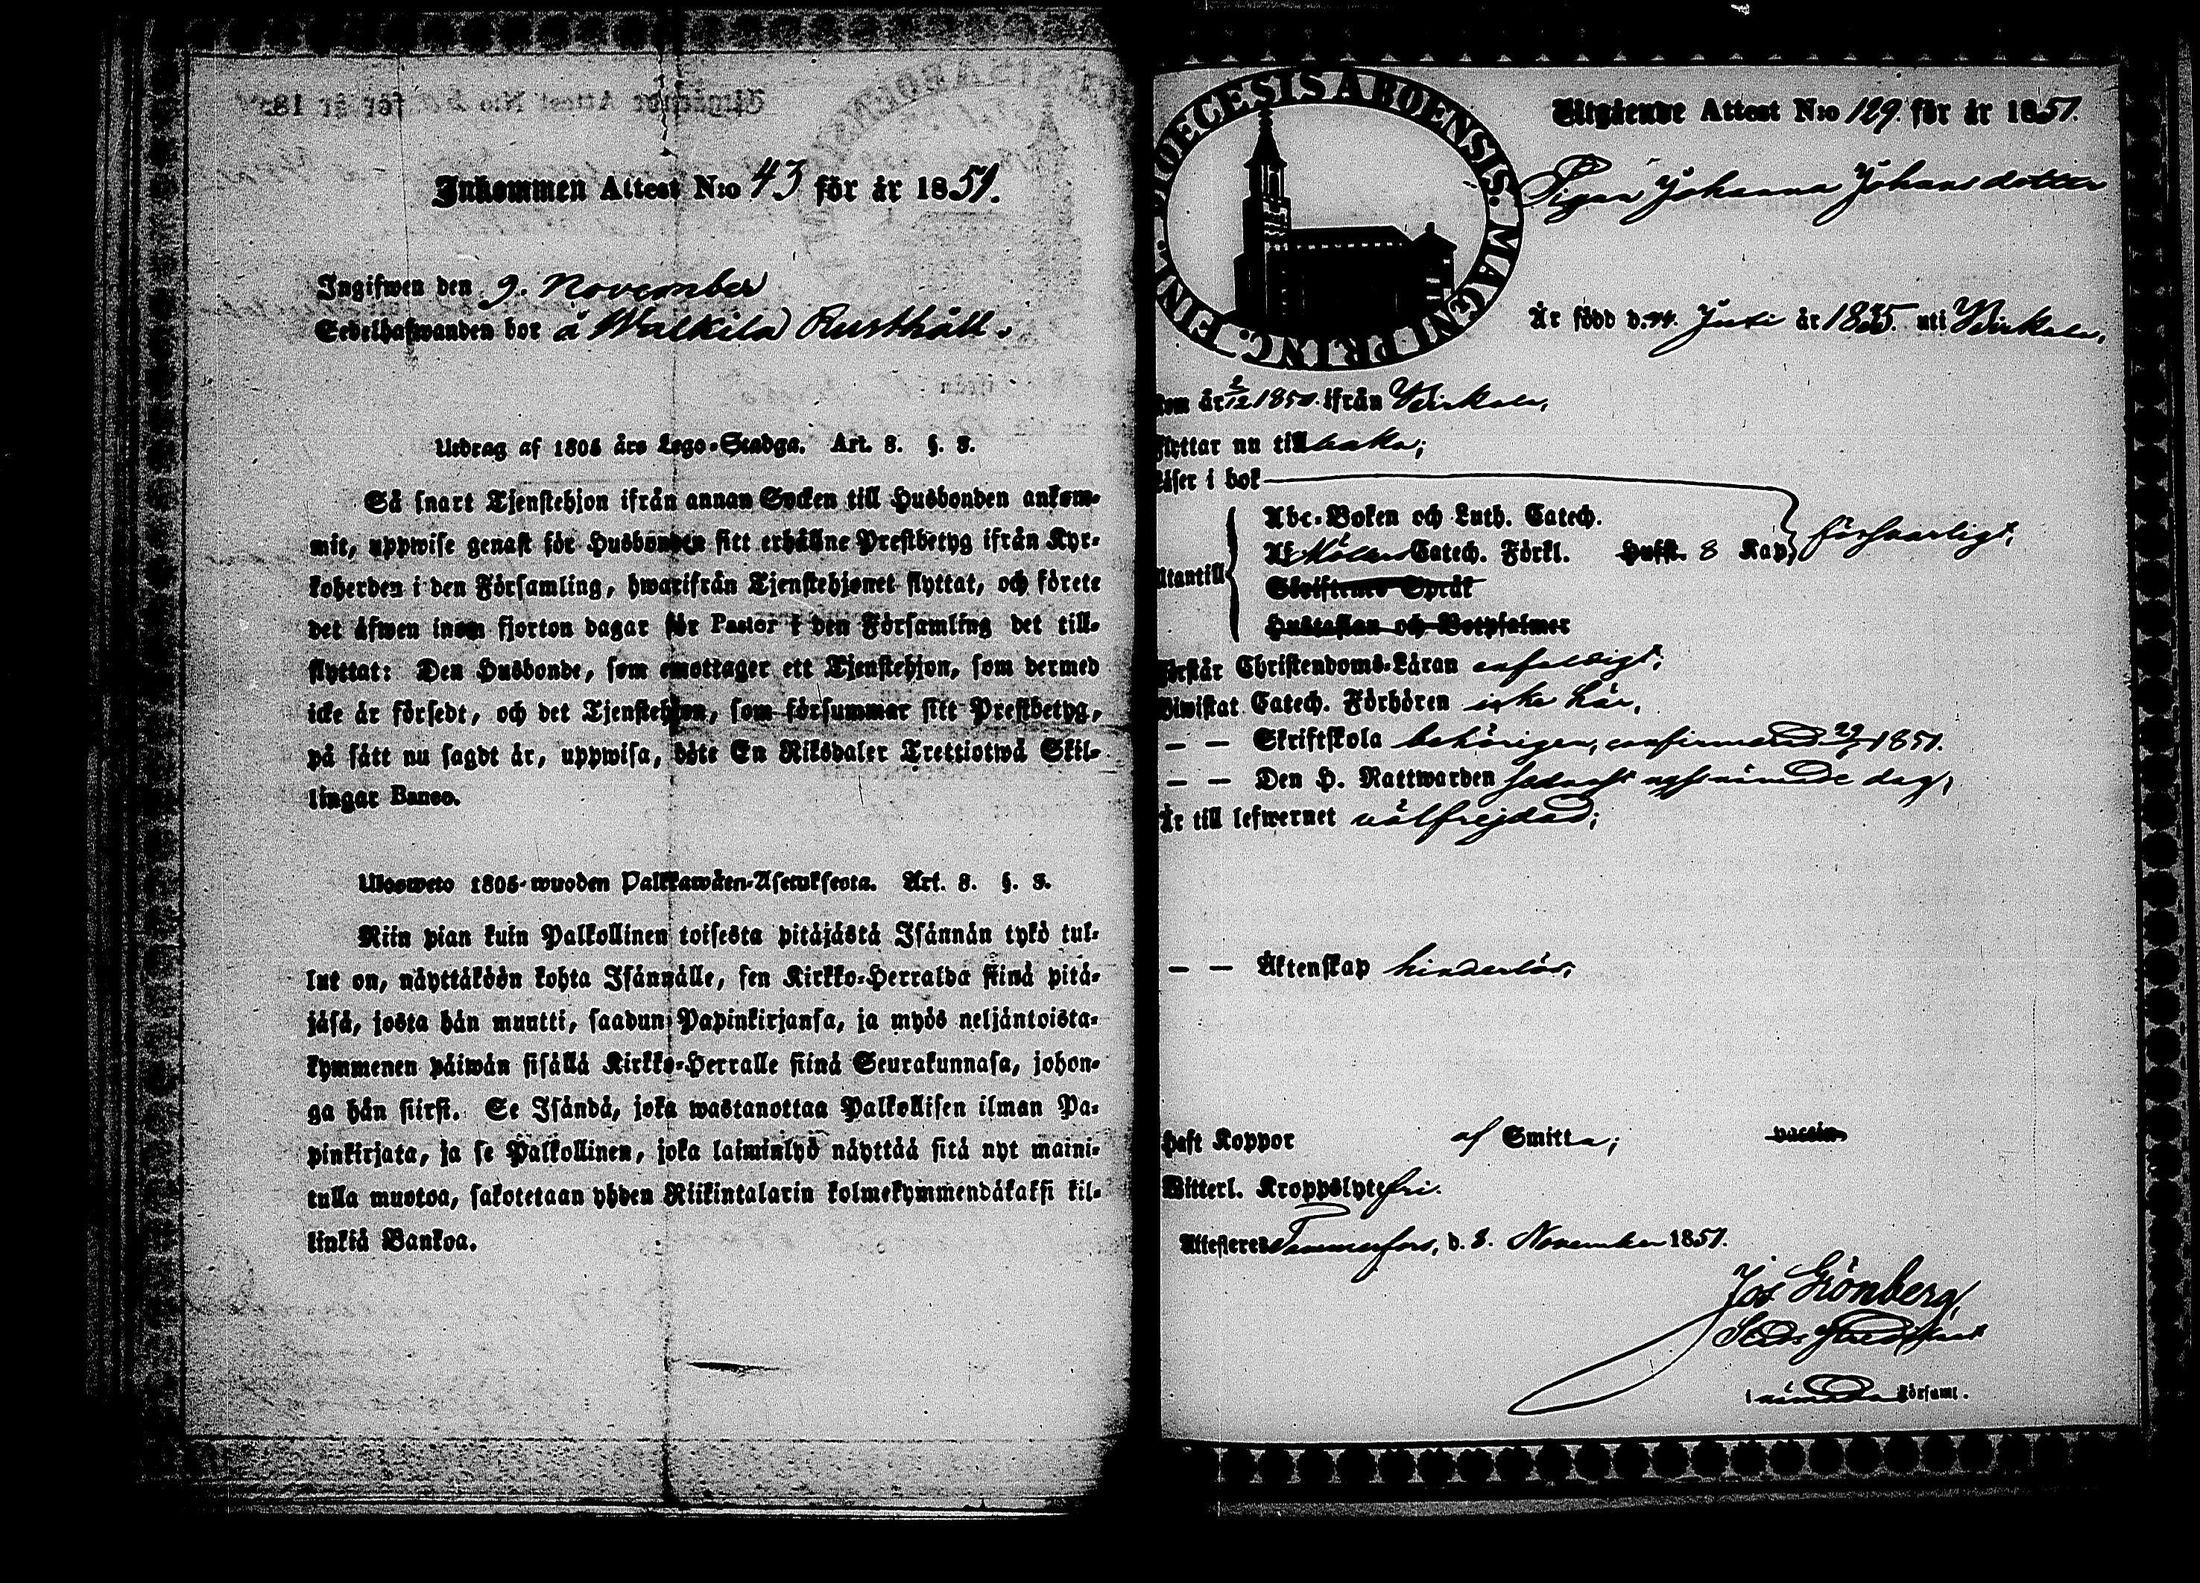 Inkommen Attest N:o 43 för år 1851.
Ingifwen den 9. November
Sedelhafwanden bor å Walkila Rusthåll.
Utdrag af 1805 års Lego-Stadga. Art. 8. §. 8.
Så snart Tjenstehjon ifrån annan Socken till Husbonden ankom-
mit, uppwise genast för Husbonden sitt erhållne Prestbetyg ifrån Kyr-
koherden i den Församling, hwarifrån Tjenstehjonet flyttat, och förete
det äfwen inom fjorton dagar för Pastor i den Församling det till-
flyttat: Den Husbonde, som emottager ett Tjenstehjon, som dermed
icke är försedt, och det Tjenstehjon, som försummar sitt Prestbetyg,
på sätt nu sagdt är, uppwisa, böte En Riksdaler Trettiotwå Skil-
lingar Banco.
Ulosweto 1805-wuoden Palkkawäen-Asetuksesta. Art. 8. §. 8.
Niin pian kuin Palkollinen toisesta pitäjästä Isännän tykö tul-
lut on, näyttäköön kohta Isännälle, sen Kirkko-Herralda siinä pitä-
jäsä, josta hän muutti, saadun Papinkirjansa, ja myös neljäntoista-
kymmenen päiwän sisällä Kirkko-Herralle siinä Seurakunnasa, johon-
ga hän siirsi. Se Isändä, joka wastanottaa Palkollisen ilman Pa-
pinkirjata, ja se Palkollinen, joka laiminlyö näyttää sitä nyt maini-
tulla muotoa, sakotetaan yhden Riikintalarin kolmekymmendäkaksi kil-
linkiä Bankoa.
DIOECESIS ABOENSIS. MAGNI PRINC. FINL.
Utgående Attest N:o 129. för år 1851.
Pigan Johanna Johansdotter
Är född d. 24. Juli år 1835. uti Birkala,
kom år 2/12 1850. ifrån Birkala,
flyttar nu tillbaka;
Läser i bok
Abc-Boken och Luth. Catech.
Catech. Förkl. Hufst. 8 Kap, försvarligt;
Utantill
Skriftenes Språk
Hustaflan och Botpsalmer
Förstår Christendoms-Läran enfaldigt;
Biwistat Catech. Förhören icke här,
— — Skriftskola behörigen, confirmerad 29/ 1851.
— — Den H. Nattwarden sednast ofvannämnde dag,
Är till lefwernet välfrejdad;
— — Äktenskap hinderlös;
Haft Koppor af Smitta; vaccin
Witterl. Kroppslyte fri.
Attesteres Tammerfors, d. 8. November 1851.
Jos Grönberg,
i nämnda Församl.